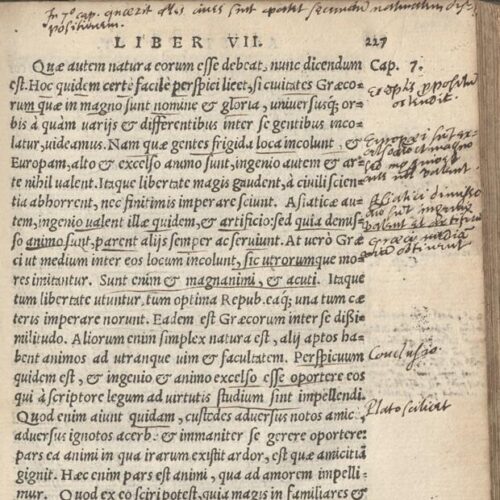 In 7º cap. quærit quales cives sint apti secundum naturalem dis-
positionem.
LIBER VII.
227
Quæ autem natura eorum esse debeat, nunc dicendum
Cap. 7.
est. Hoc quidem certè facile perspici licet, si civitates Græco-
rum quæ in magno sunt nomine & gloria, universusq; or-
bis à quàm varijs & differentibus inter se gentibus inco-
latur, videamus. Nam quæ gentes frigida loca incolunt, &
Europam, alto & excelso animo sunt, ingenio autem & ar-
te nihil valent. Itaque libertate magis gaudent, à civili scien-
tia abhorrent, nec finitimis imperare sciunt. Asiaticæ au-
tem, ingenio valent illæ quidem, & artificio: sed quia demis-
so animo sunt, parent alijs semper ac serviunt. At verò Græ
ci ut medium inter eos locum incolunt, sic utrorumque mo-
res imitantur. Sunt enim & magnanimi, & acuti. Itaque
tum libertate utuntur, tum optima Repub. eaq; una tum cæ
teris imperare norunt. Eadem est Græcorum inter se dißi-
militudo. Aliorum enim simplex natura est, alij aptos ha-
bent animos ad utranque vim & facultatem. Perspicuum
quidem est, & ingenio & animo excelso esse oportere eos
Conclusio
qui à scriptore legum ad virtutis studium sint impellendi.
Quod enim aiunt quidam, custodes adversus notos amic.
Plato scilicet
adversus ignotos acerb. & immaniter se gerere oportere:
pars ea animi in qua irarum existit ardor, est quæ amicitiã
gignit. Hæc enim pars est animi, qua ad amorem impelli-
mur. Quod ex eo sciri potest, quia magis in familiares &